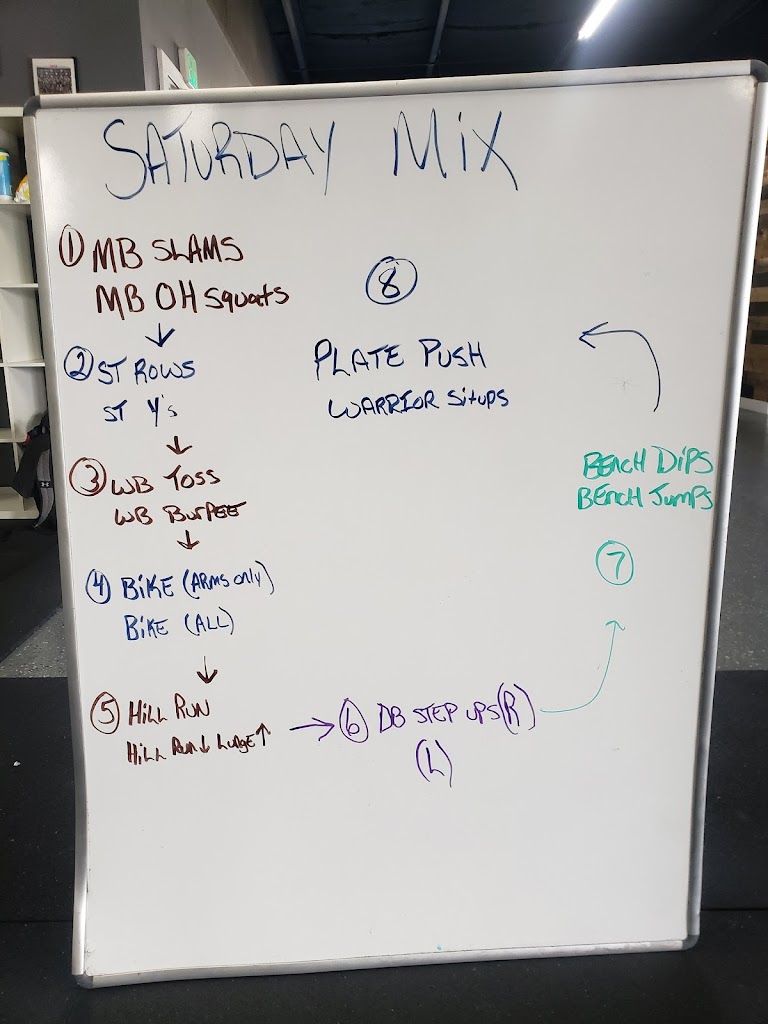 SATURDAY MiX
① MB SLAMS
MB OH squats
② ST ROWS
ST Y's
③ WB TOSS
WB BURPEE
④ BiKE (ARMS only)
BiKE (ALL)
⑤ HiLL RUN
HiLL RUN↓ LUNGE↑
⑥ DB STEP UPS (R)
(L)
⑦
BENCH DiPS
BENCH JUMPS
⑧
PLATE PUSH
WARRIOR SiTUPS